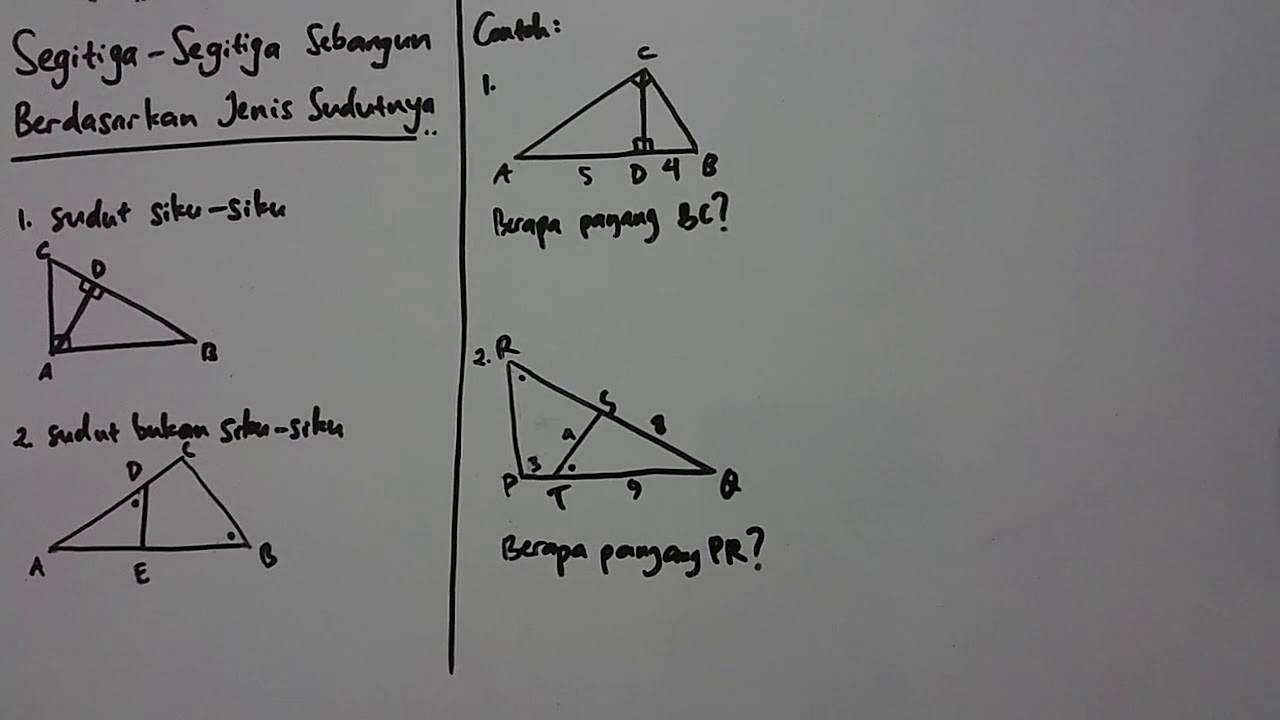 Segitiga-Segitiga Sebangun
Berdasarkan Jenis Sudutnya..
1. sudut siku-siku
C
D
A
B
2. sudut bukan siku-siku
D
C
A
E
B
Contoh:
1.
C
A
5
D
4
B
Berapa panjang BC?
2.
R
S
8
a
3
P
T
9
Q
Berapa panjang PR?